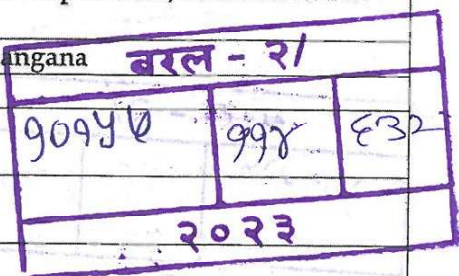 angana
बरल - २/
१०१५७ ११४ ६३२
२०२३